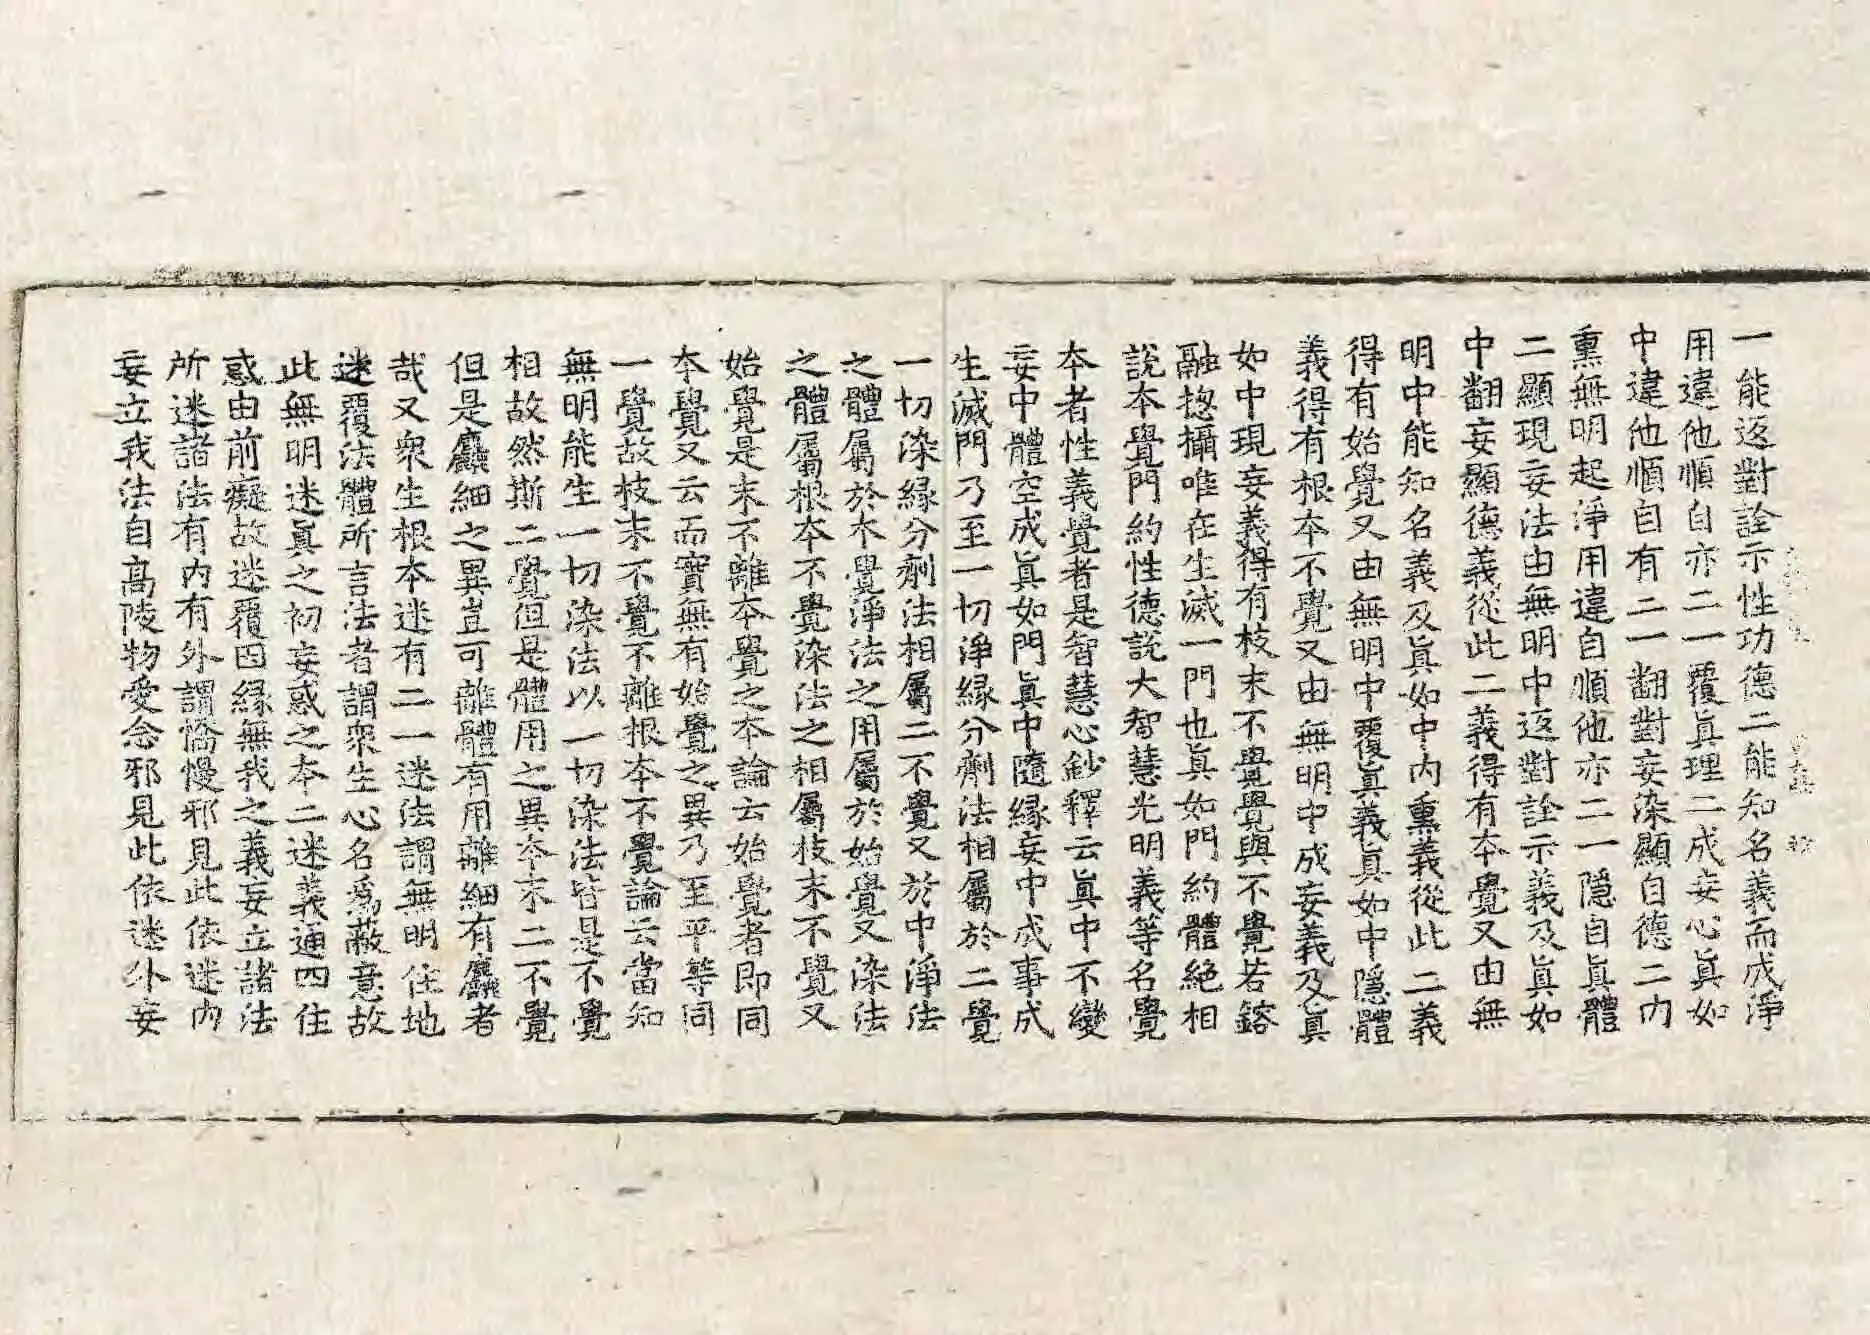 一能返對詮示性功德二能知名義而成淨
用違他順自亦二一覆眞理二成妄心眞如
中違他順自有二一翻對妄染顯自德二內
熏無明起淨用違自順他亦二一隱自眞體
二顯現妄法由無明中返對詮示義及眞如
中翻妄顯德義從此二義得有本覺又由無
明中能知名義及眞如中內熏義從此二義
得有始覺又由無明中覆眞義眞如中隱體
義得有根本不覺又由無明中成妄義及眞
如中現妄義得有枝末不覺覺與不覺若鎔
融揔攝唯在生滅一門也眞如門約體絕相
說本覺門約性德說大智慧光明義等名覺
本者性義覺者是智慧心鈔釋云眞中不變
妄中體空成眞如門眞中隨緣妄中成事成
生滅門乃至一切淨緣分劑法相屬於二覺
一切染緣分劑法相屬二不覺又於中淨法
之體屬於本覺淨法之用屬於始覺又染法
之體屬根本不覺染法之相屬枝末不覺又
始覺是末不離本覺之本論云始覺者即同
本覺又云而實無有始覺之異乃至平等同
一覺故枝末不覺不離根本不覺論云當知
無明能生一切染法以一切染法皆是不覺
相故然斯二覺但是體用之異本末二不覺
但是麤細之異豈可離體有用離細有麤者
哉又衆生根本迷有二一迷法謂無明住地
迷覆法體所言法者謂衆生心名爲蔽意故
此無明迷眞之初妄惑之本二迷義通四住
惑由前癡故迷覆因緣無我之義妄立諸法
所迷諸法有內有外謂憍慢邪見此依迷內
妄立我法自高陵物愛念邪見此依迷外妄